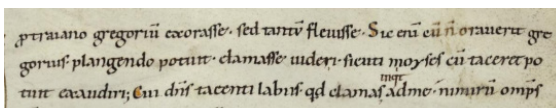 ꝓtraiano gregoriū exorasse · sed tantū flevisse · Sic eni eū n̄ oraverit gre
gorius · plangendo potuit · clamasse videri · sicuti moyses cū taceret po
tuit exaudiri; Cui dn̄s tacenti labiis · qd clamas inqt ad me · nimirū omp̄s